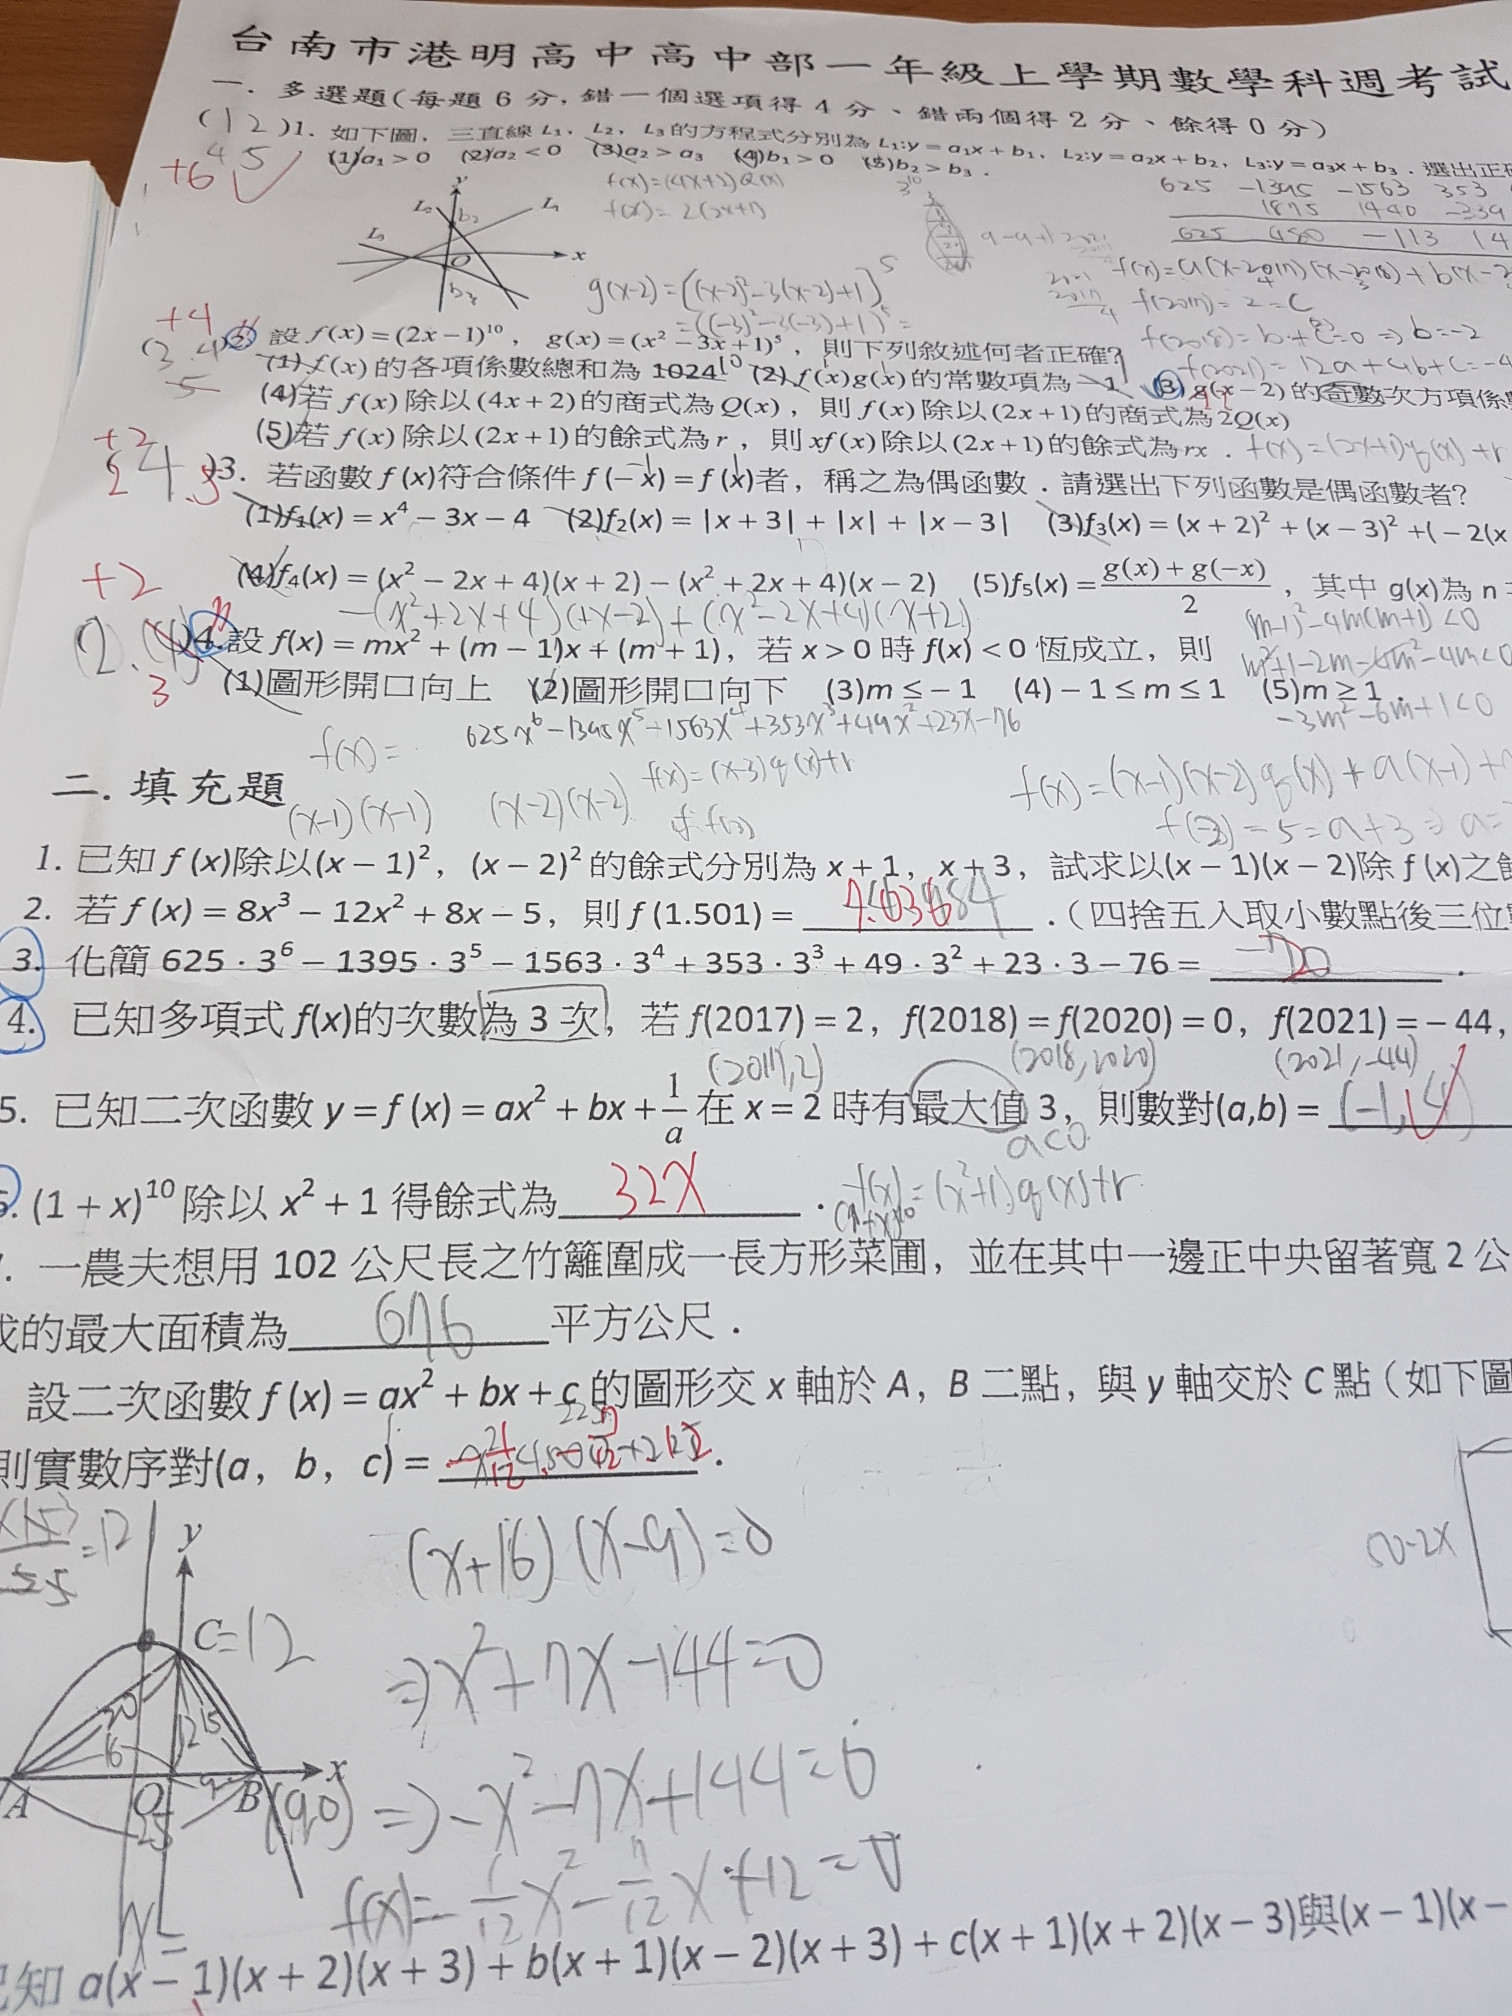 台南市港明高中高中部一年級上學期數學科週考試
一. 多選題(每題 6 分, 錯一個選項得 4 分、錯兩個得 2 分、餘得 0 分)
(12)1. 如下圖, 三直線 L₁, L₂, L₃ 的方程式分別為 L₁:y = a₁x + b₁, L₂:y = a₂x + b₂, L₃:y = a₃x + b₃ . 選出正確
45
+6
(1)a₁ > 0 (2)a₂ < 0 (3)a₂ > a₃ (4)b₁ > 0 (5)b₂ > b₃ .
f(x)=(4x+2)Q(x)
f(x)= 2(2x+1)
625 -1395 -1563 353
1875 1440 -339
625 480 -113 14
y
L₂
b₂
L₁
L₃
O
x
b₃
g(x-2)=((x-2)²-3(x-2)+1)⁵
=((-3)²-3(-3)+1)⁵=
f(2017)=2=C
f(2018)=b+c=0 ⇒ b=-2
f(2021)=12a+4b+c=-4
+4
(3.4)2. 設 f(x) = (2x − 1)¹⁰, g(x) = (x² − 3x + 1)⁵, 則下列敘述何者正確?
5
(1) f(x) 的各項係數總和為 1024 (2) f(x)g(x) 的常數項為 −1 (3) g(x − 2) 的奇數次方項係
(4)若 f(x) 除以 (4x + 2) 的商式為 Q(x), 則 f(x) 除以 (2x + 1) 的商式為 2Q(x)
(5)若 f(x) 除以 (2x + 1) 的餘式為 r, 則 xf(x) 除以 (2x + 1) 的餘式為 rx .
f(x)=(2x+1)q(x)+r
+2
3. 若函數 f (x)符合條件 f (− x) = f (x)者, 稱之為偶函數 . 請選出下列函數是偶函數者?
(1)f₁(x) = x⁴ − 3x − 4 (2)f₂(x) = |x + 3| + |x| + |x − 3| (3)f₃(x) = (x + 2)² + (x − 3)² +( − 2(x
(4)f₄(x) = (x² − 2x + 4)(x + 2) − (x² + 2x + 4)(x − 2) (5)f₅(x) = g(x) + g(−x) / 2 , 其中 g(x)為 n
-(x²+2x+4)(+x-2)+(x²-2x+4)(x+2)
+2
4. 設 f(x) = mx² + (m − 1)x + (m + 1), 若 x > 0 時 f(x) < 0 恆成立, 則
(m-1)²-4m(m+1)<0
m²+1-2m-4m²-4m<0
(1)圖形開口向上 (2)圖形開口向下 (3)m ≤ − 1 (4) − 1 ≤ m ≤ 1 (5)m ≥ 1 .
3
-3m²-6m+1<0
f(x)= 625x⁶-1395x⁵-1563x⁴+353x³+49x²+23x-76
二. 填充題
f(x)=(x-3)q(x)+r
(x-1)(x-1) (x-2)(x-2)
f(x)=(x-1)(x-2)q(x)+a(x-1)+
1. 已知 f (x)除以(x − 1)², (x − 2)² 的餘式分別為 x + 1, x + 3, 試求以(x − 1)(x − 2)除 f (x)之
2. 若 f (x) = 8x³ − 12x² + 8x − 5, 則 f (1.501) = . (四捨五入取小數點後三位
3. 化簡 625 · 3⁶ − 1395 · 3⁵ − 1563 · 3⁴ + 353 · 3³ + 49 · 3² + 23 · 3 − 76 = .
4. 已知多項式 f(x)的次數為 3 次, 若 f(2017) = 2, f(2018) = f(2020) = 0, f(2021) = − 44,
(2017,2) (2018,2020) (2021,-44)
5. 已知二次函數 y = f (x) = ax² + bx + 1/a 在 x = 2 時有最大值 3, 則數對(a,b) = (-1,4)
a<0
6. (1 + x)¹⁰ 除以 x² + 1 得餘式為 32x .
f(x)=(x²+1)q(x)+r
. 一農夫想用 102 公尺長之竹籬圍成一長方形菜圃, 並在其中一邊正中央留著寬 2 公
成的最大面積為 676 平方公尺 .
設二次函數 f (x) = ax² + bx + c 的圖形交 x 軸於 A, B 二點, 與 y 軸交於 C 點 (如下圖
則實數序對(a, b, c) = .
(x+16)(x-9)=0
50-2x
y
C=12
⇒x²+7x-144=0
20
16
12
15
9
x
A
O
B
(9,0)
25
⇒-x²-7x+144=0
f(x)=-1/12x²-7/12x+12=0
x=
已知 a(x − 1)(x + 2)(x + 3) + b(x + 1)(x − 2)(x + 3) + c(x + 1)(x + 2)(x − 3)與(x − 1)(x −